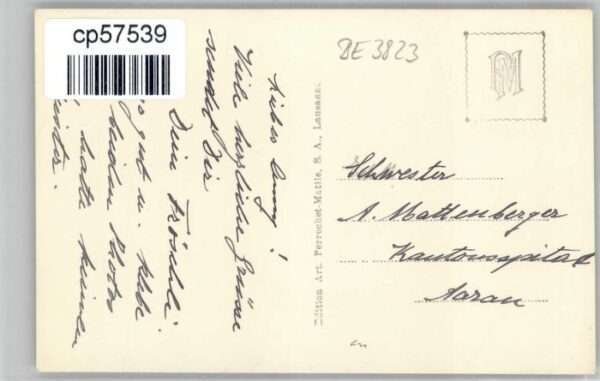 cp57539
BE 3823
PM
Liebes Anny!
Viele herzliche Grüsse
sendet Dir
Dein Fröschli.
's gut u. klebe
beiden
hatte keinen
Edition Art. Perrochet-Matile, S. A., Lausanne
Schwester
A. Mattenberger
Kantonsspital
Aarau